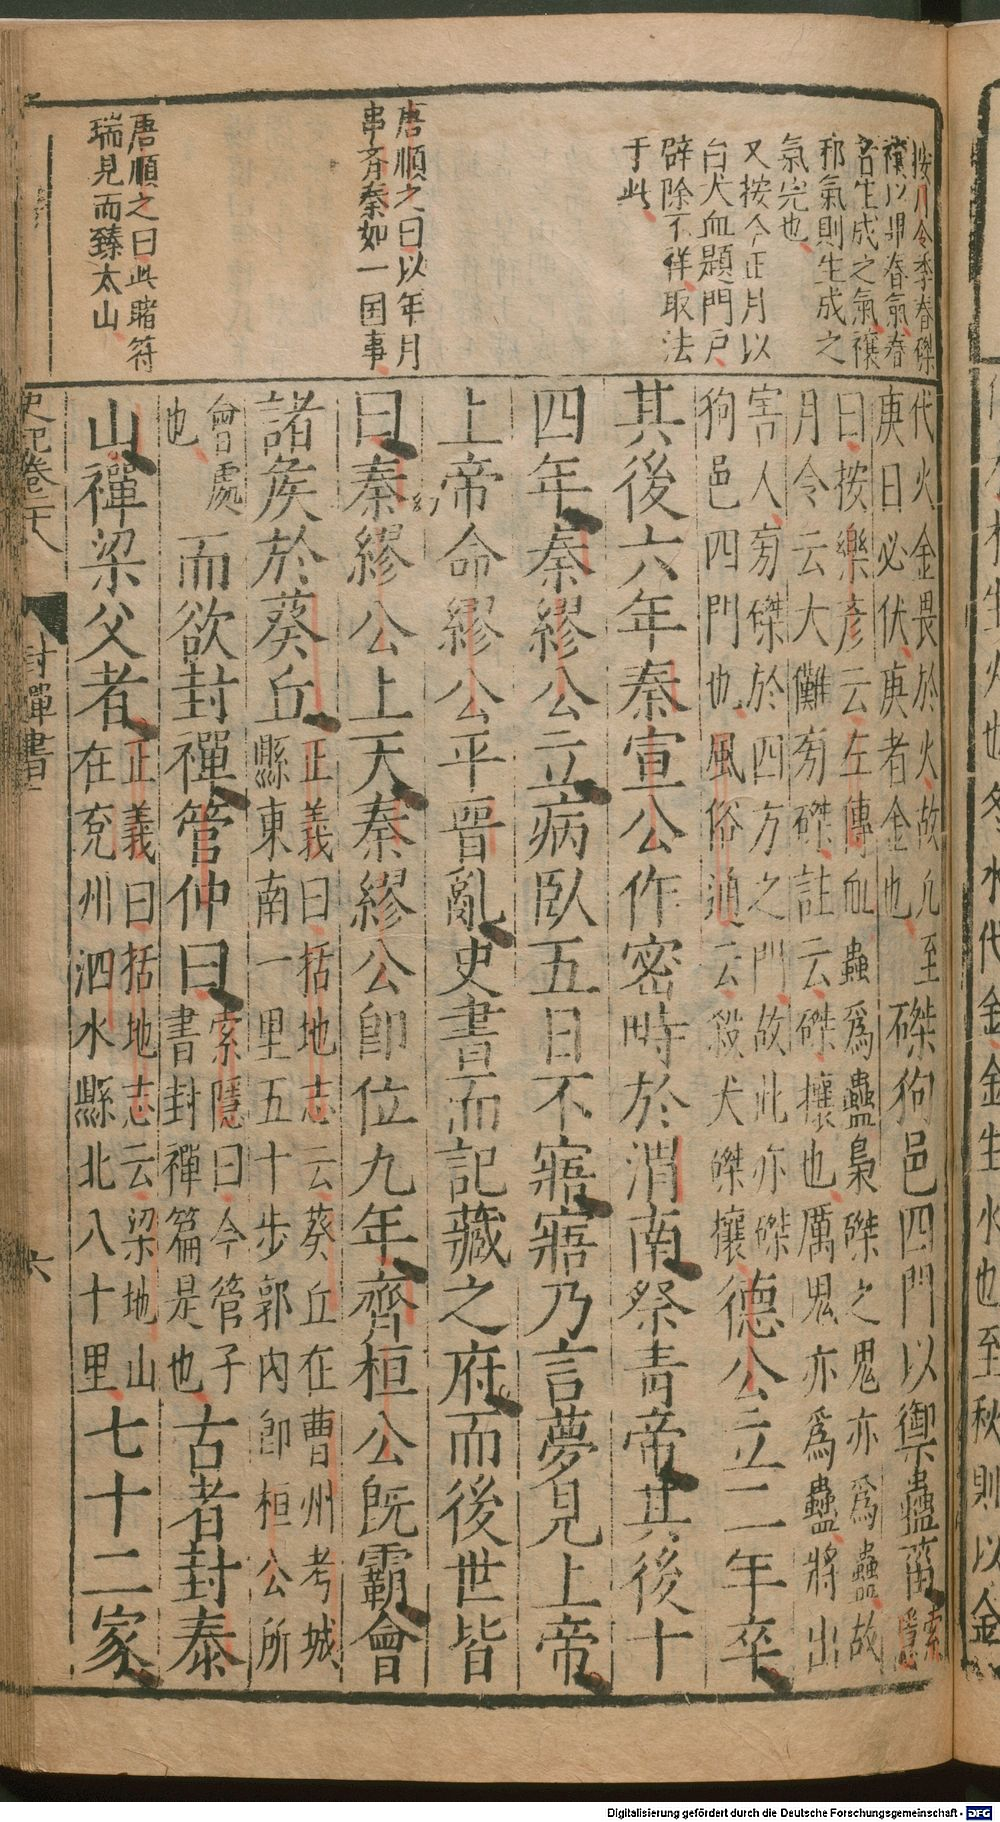 按月令季春磔
禳以畢春氣春
者生成之氣禳
邪氣則生成之
氣完也
又按今正月以
白犬血題門戶
辟除不祥取法
于此
唐順之曰以年月
串齊秦如一国事
唐順之曰此賭符
瑞見而臻太山
代火金畏於火故允至
庚日必伏庚者金也
磔狗邑四門以禦蠱菑
索
隱
曰按樂彥云左傳皿蟲爲蠱梟磔之鬼亦爲蠱故
月令云大儺旁磔註云磔攘也厲鬼亦爲蠱將出
害人旁磔於四方之門故此亦磔
狗邑四門也風俗通云殺犬磔攘
德公立二年卒
其後六年秦宣公作密畤於渭南祭青帝其後十
四年秦繆公立病臥五日不寤寤乃言夢見上帝
上帝命繆公平晉亂史書而記藏之府而後世皆
曰秦繆公上天秦繆公卽位九年齊桓公既霸會
諸矦於葵丘
正義曰括地志云葵丘在曹州考城
縣東南一里五十步郭內卽桓公所
會處
也
而欲封禪管仲曰
索隱曰今管子
書封禪篇是也
古者封泰
山禪梁父者
正義曰括地志云梁地山
在兗州泗水縣北八十里
七十二家
史記卷二十八
封禪書
六
Digitalisierung gefördert durch die Deutsche Forschungsgemeinschaft - DFG